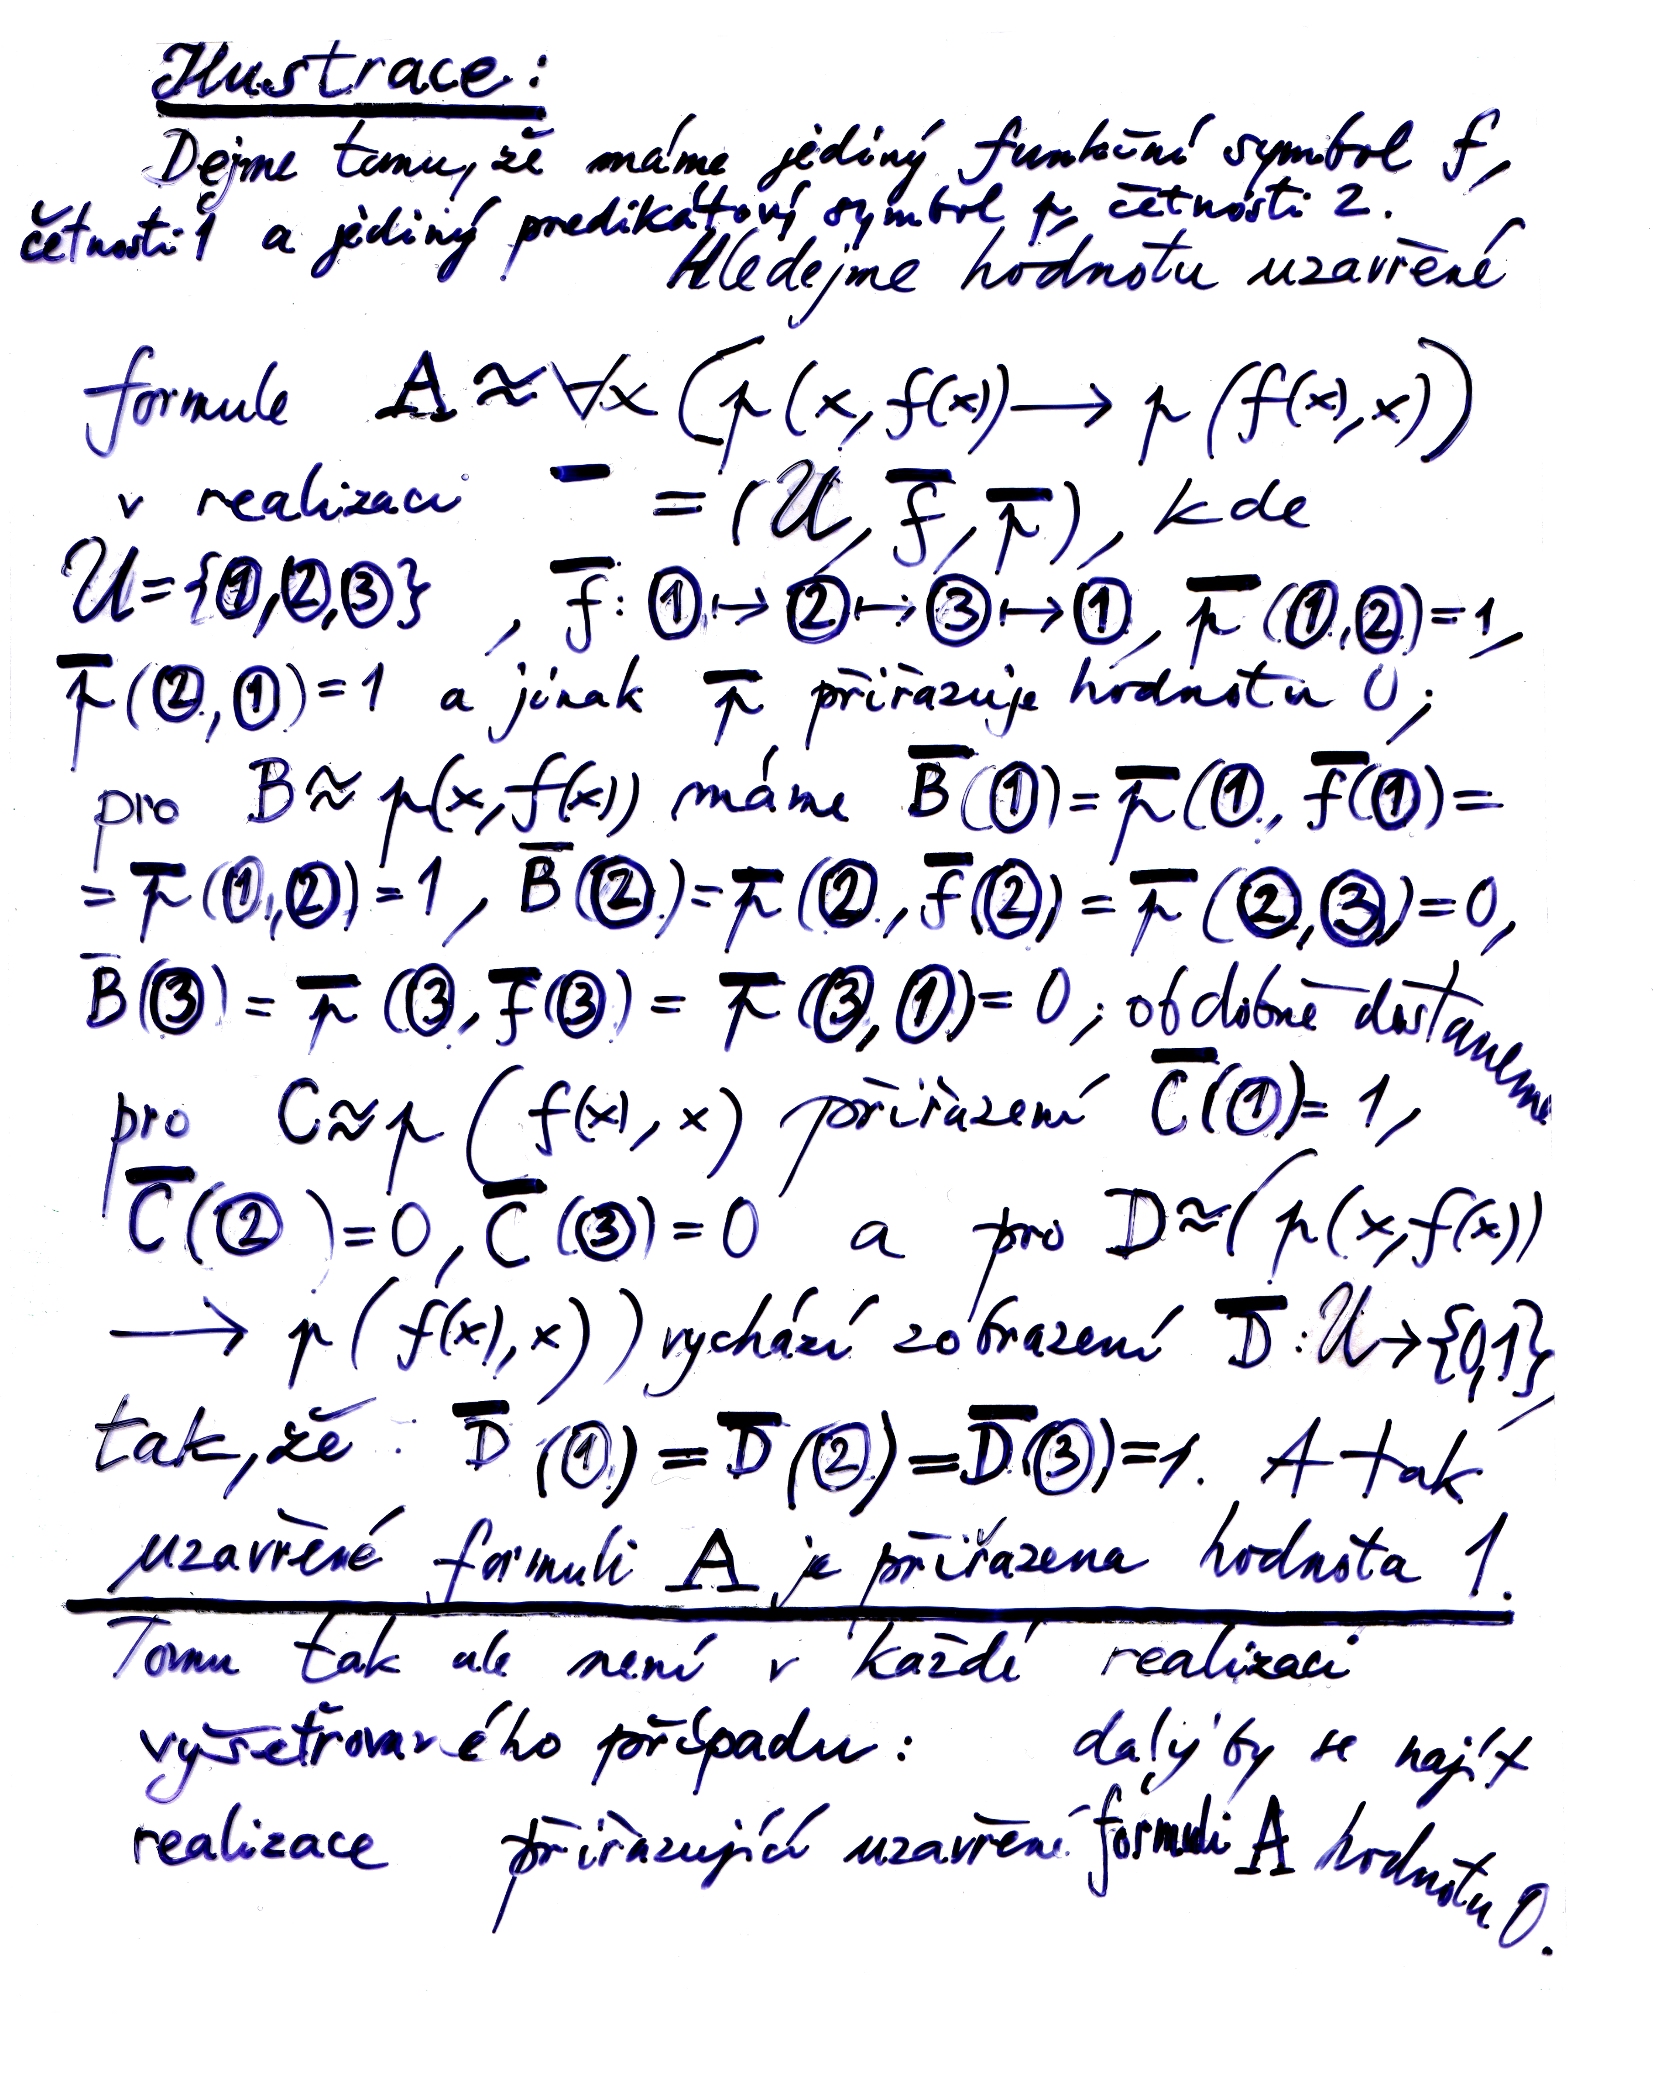 Ilustrace:
Dejme tomu, že máme jediný funkční symbol f,
četnosti 1 a jediný predikátový symbol p, četnosti 2.
Hledejme hodnotu uzavřené
formule A ≈ ∀x (p(x, f(x)) ⟶ p(f(x), x))
v realizaci ¯ = (𝒰, f̅, p̅), kde
𝒰 = {①, ②, ③}, f̅: ① ↦ ② ↦ ③ ↦ ①, p̅(①,②) = 1,
p̅(②, ①) = 1 a jinak p̅ přiřazuje hodnotu 0;
pro B ≈ p(x, f(x)) máme B̅(①) = p̅(①, f̅(①) =
= p̅(①,②) = 1, B̅(②) = p̅(②, f̅(②) = p̅(②,③) = 0,
B̅(③) = p̅(③, f̅(③) = p̅(③,①) = 0; obdobně dostaneme
pro C ≈ p(f(x), x) přiřazení C̅(①) = 1,
C̅(②) = 0, C̅(③) = 0 a pro D ≈ (p(x, f(x))
⟶ p(f(x), x)) vychází zobrazení D̅: 𝒰 → {0,1},
tak, že: D̅(①) = D̅(②) = D̅(③) = 1. A tak
uzavřené formuli A je přiřazena hodnota 1.
Tomu tak ale není v každé realizaci
vyšetřovaného případu: daly by se najít
realizace přiřazující uzavřené formuli A hodnotu 0.